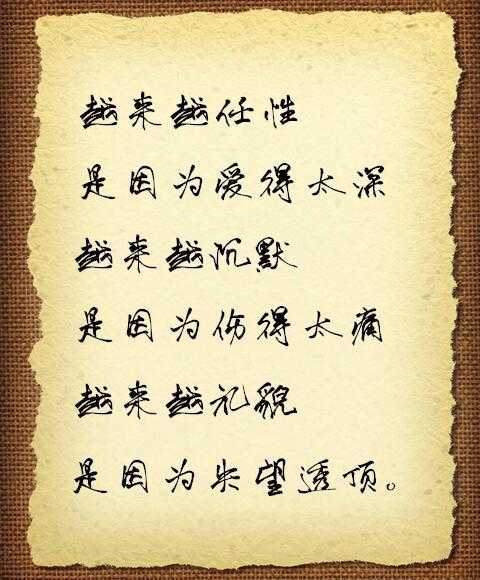 越来越任性
是因为爱得太深
越来越沉默
是因为伤得太痛
越来越礼貌
是因为失望透顶。